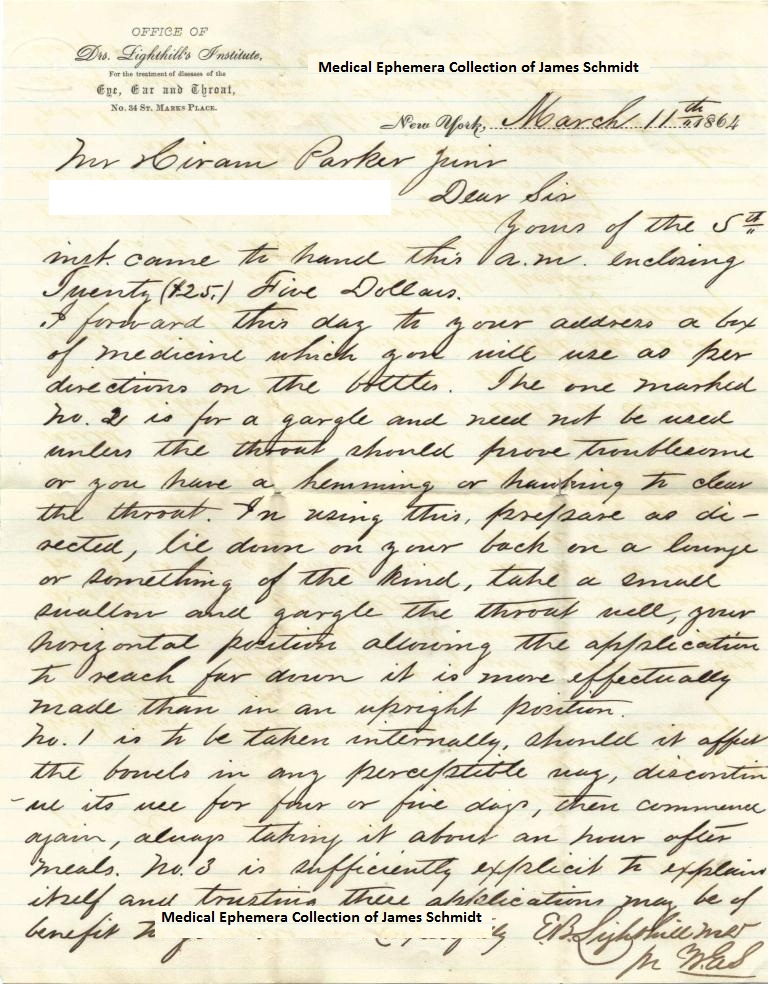 OFFICE OF
Drs. Lighthill's Institute,
For the treatment of diseases of the
Eye, Ear and Throat,
No. 34 St. Marks Place.
Medical Ephemera Collection of James Schmidt
New York, March 11th 1864
Mr Hiram Parker Junr
Dear Sir
Yours of the 5th
inst. came to hand this a.m. enclosing
Twenty ($25.) Five Dollars.
I forward this day to your address a box
of medicine which you will use as per
directions on the bottles. The one marked
No. 2 is for a gargle and need not be used
unless the throat should prove troublesome
or you have a hemming or hawking to clear
the throat. In using this, prepare as di-
rected, lie down on your back on a lounge
or something of the kind, take a small
swallow and gargle the throat well, your
horizontal position allowing the application
to reach far down it is more effectually
made than in an upright position.
No. 1 is to be taken internally, should it affect
the bowels in any perceptible way, discontin
-ue its use for four or five days, then commence
again, always taking it about an hour after
meals. No. 3 is sufficiently explicit to explain
itself and trusting these applications may be of
benefit
Medical Ephemera Collection of James Schmidt
E.B. Lighthill MD